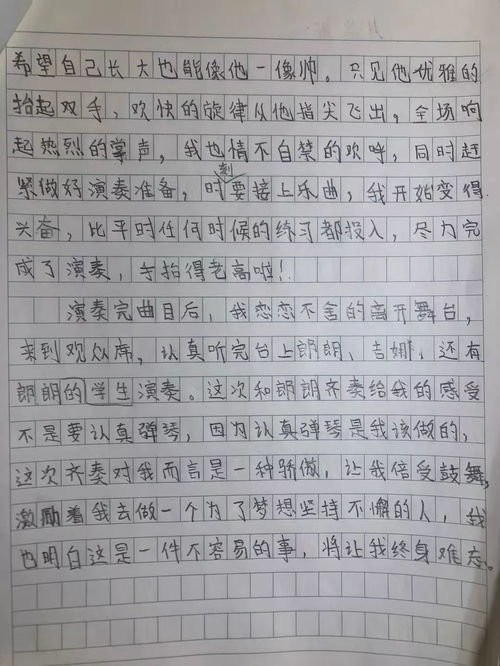 希望自己长大也能像他一像帅。只见他优雅的
抬起双手，欢快的旋律从他指尖飞出，全场响
起热烈的掌声，我也情不自禁的欢呼，同时赶
紧做好演奏准备，时刻要接上乐曲，我开始变得
兴奋，比平时任何时候的练习都投入，尽力完
成了演奏，手抬得老高啦！
演奏完曲目后，我恋恋不舍的离开舞台，
来到观众席，认真听完台上郎朗、吉娜，还有
郎朗的学生演奏。这次和郎朗齐奏给我的感受
不是要认真弹琴，因为认真弹琴是我该做的，
这次齐奏对我而言是一种骄傲，让我倍受鼓舞，
激励着我去做一个为了梦想坚持不懈的人，我
也明白这是一件不容易的事，将让我终身难忘。